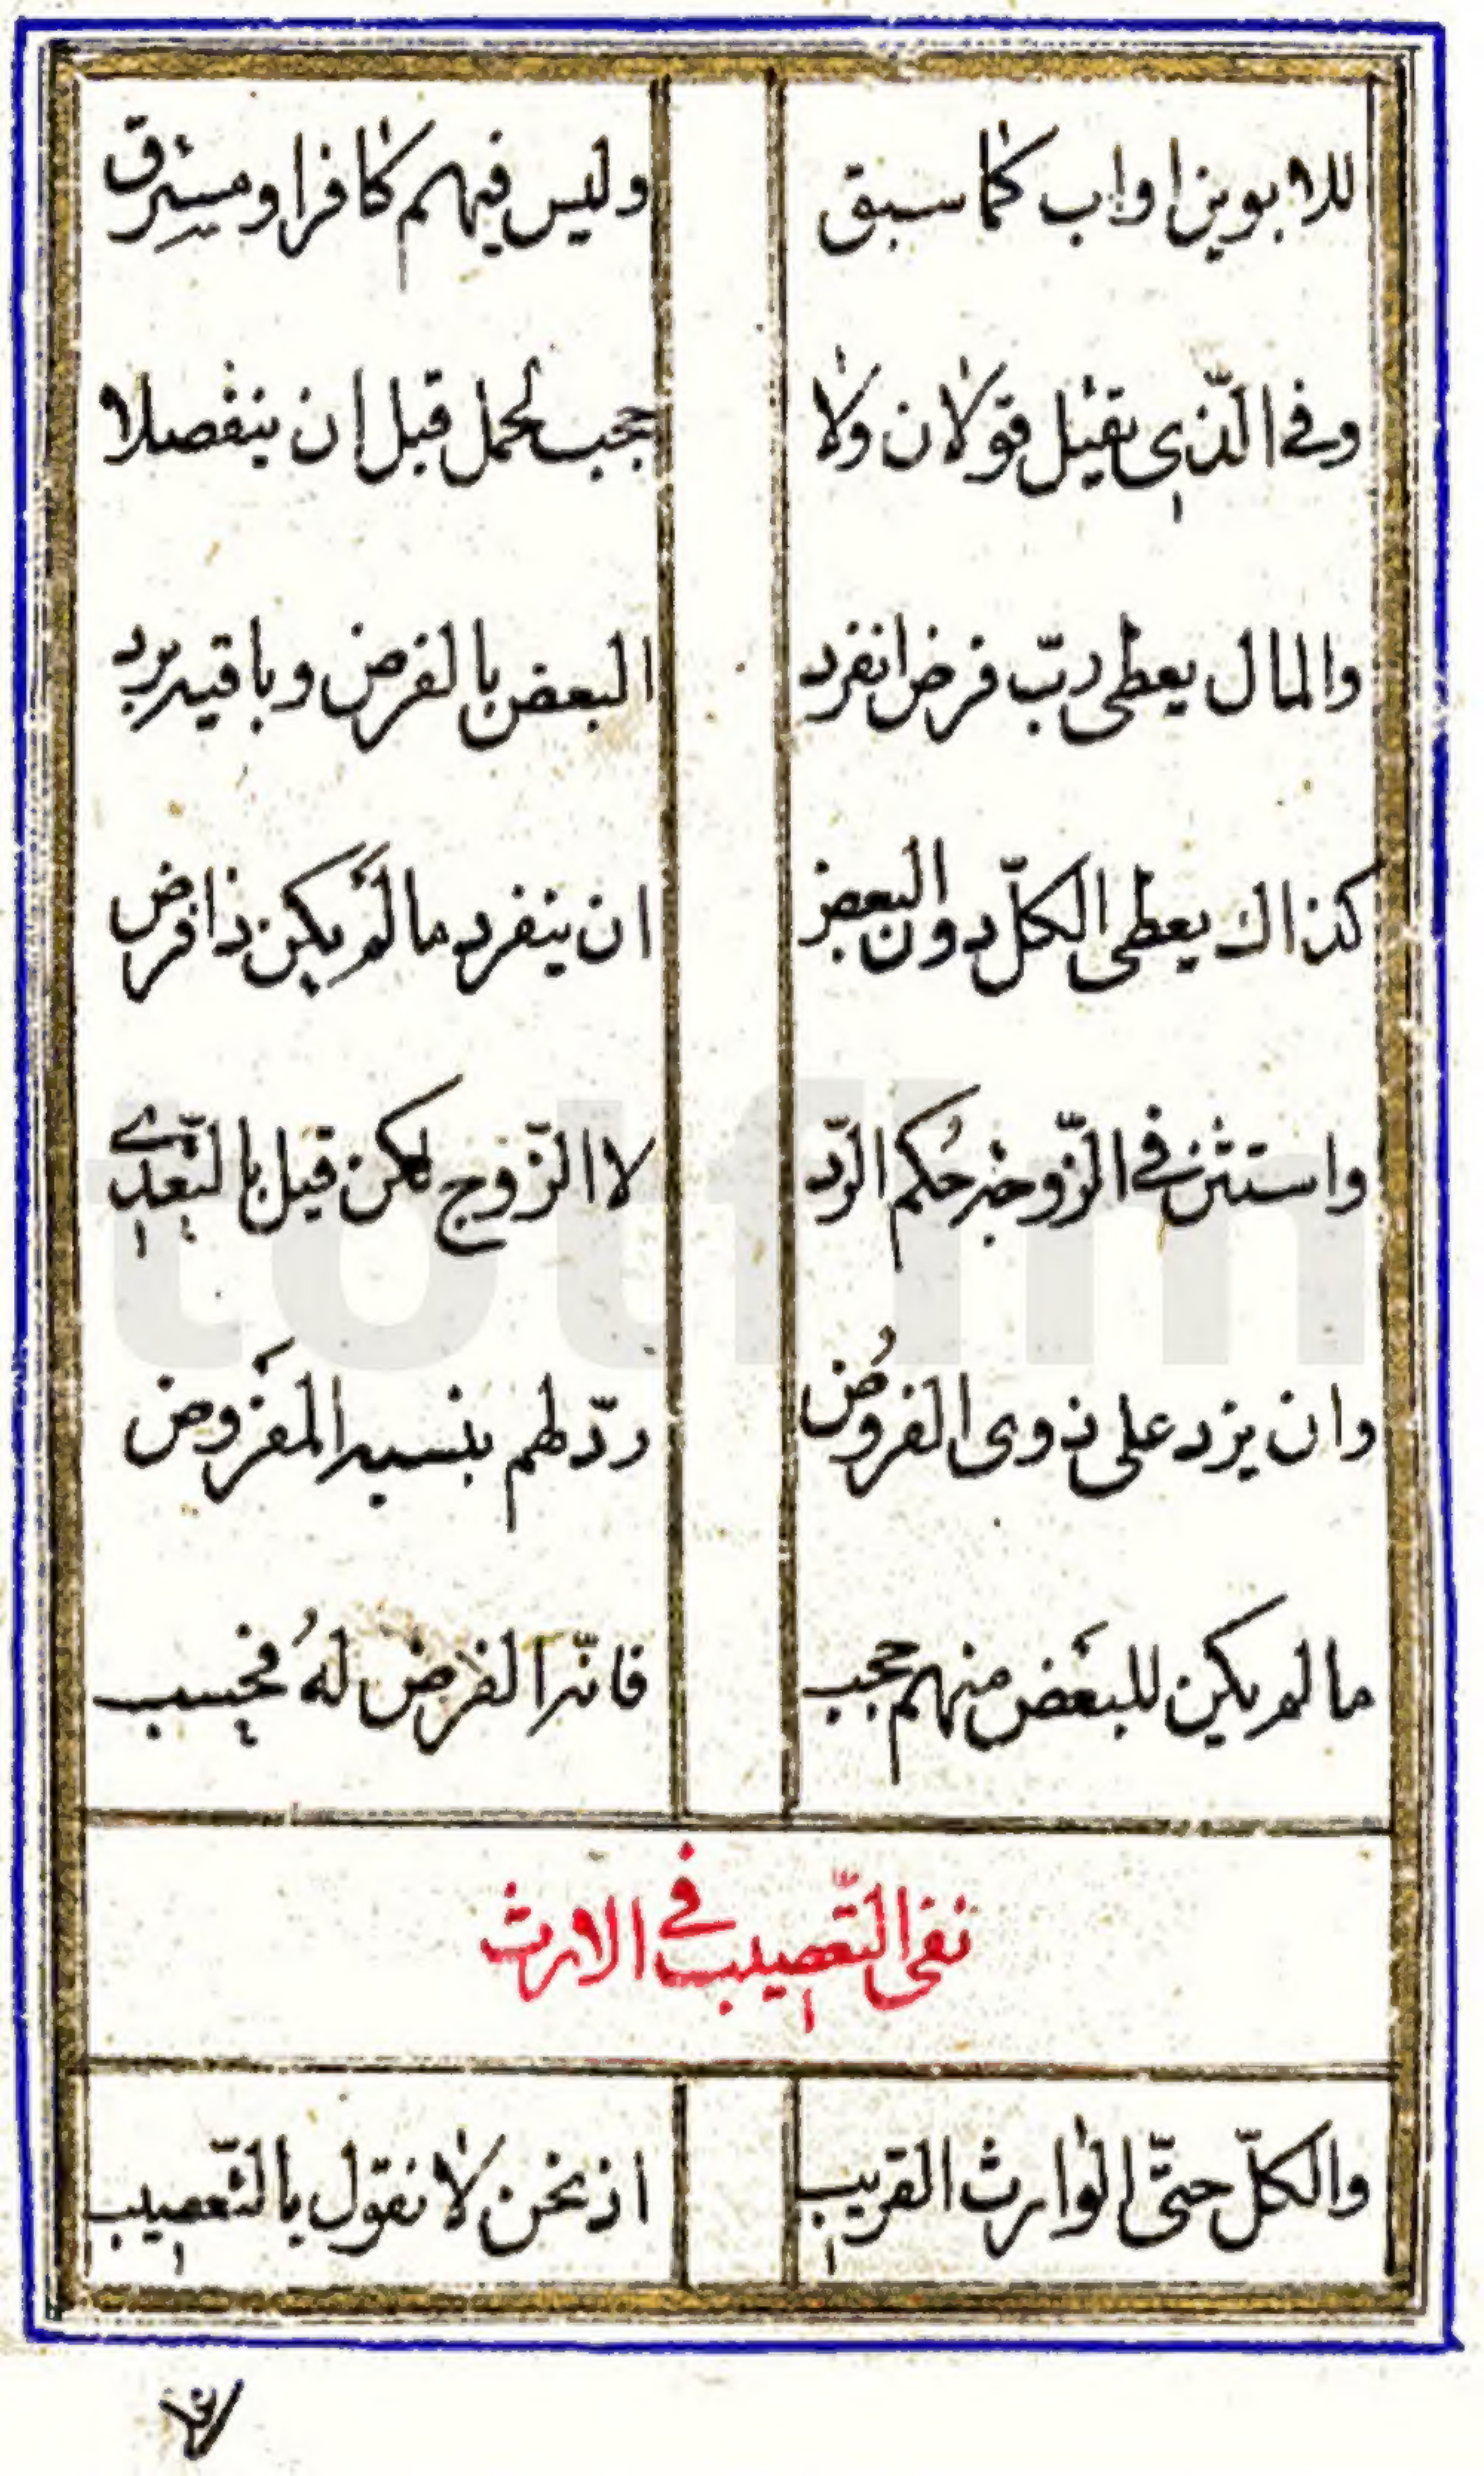 للابوين او اب كما سبق وليس فيهم كافر او مسترق
وفي الذي يقتل قولان ولا يحجب الحمل قبل ان ينفصلا
والمال يعطى ربّ فرض انفرد البعض بالفرض وباقيه يرد
كذاك يعطى الكلّ دون البعض ان ينفرد ما لم يكن ذا فرض
واستثن في الزّوجة حُكم الرّد لا الزّوج لكن قيل بالتّعدّي
وان يزد على ذوى الفروُض ردّ لهم بنسبة المفَروض
ما لم يكن للبعَض منهم حجب فانّه الفرض لهُ فحسب
نفى التّعصيب في الارث
والكلّ حتّى الوارث القريب اذ نحن لا نقول بالتّعصيب